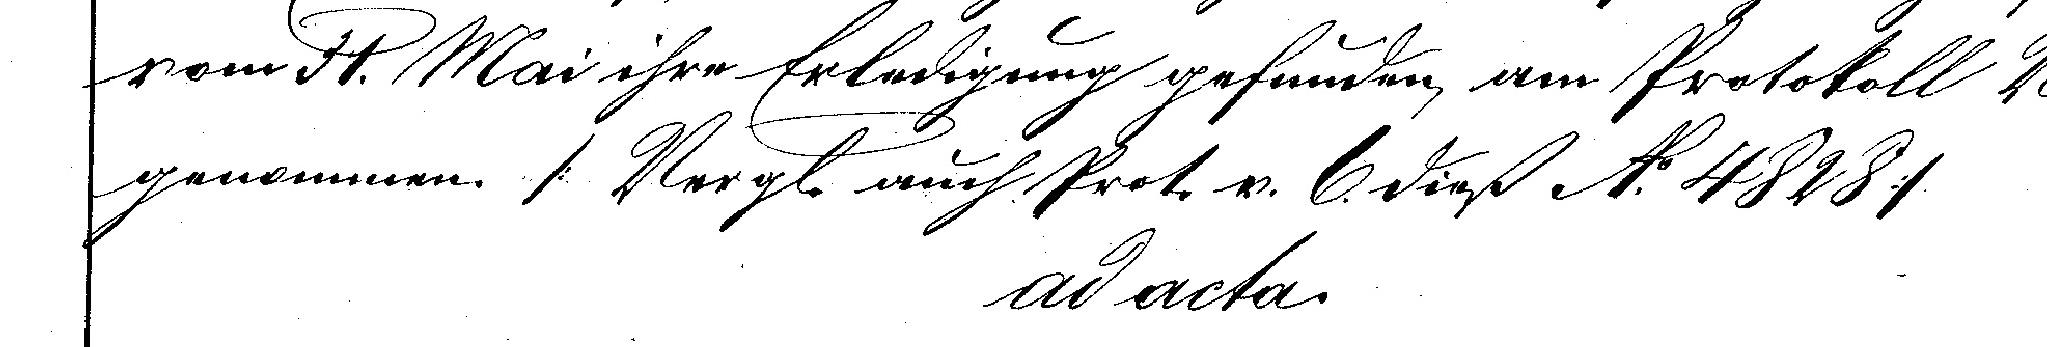 vom 31. Mai ihre Erledigung gefunden, am Protokoll
genommen. /: Vergl. auch Prot. v. 6. dieß No. 4828 :/.
ad acta.